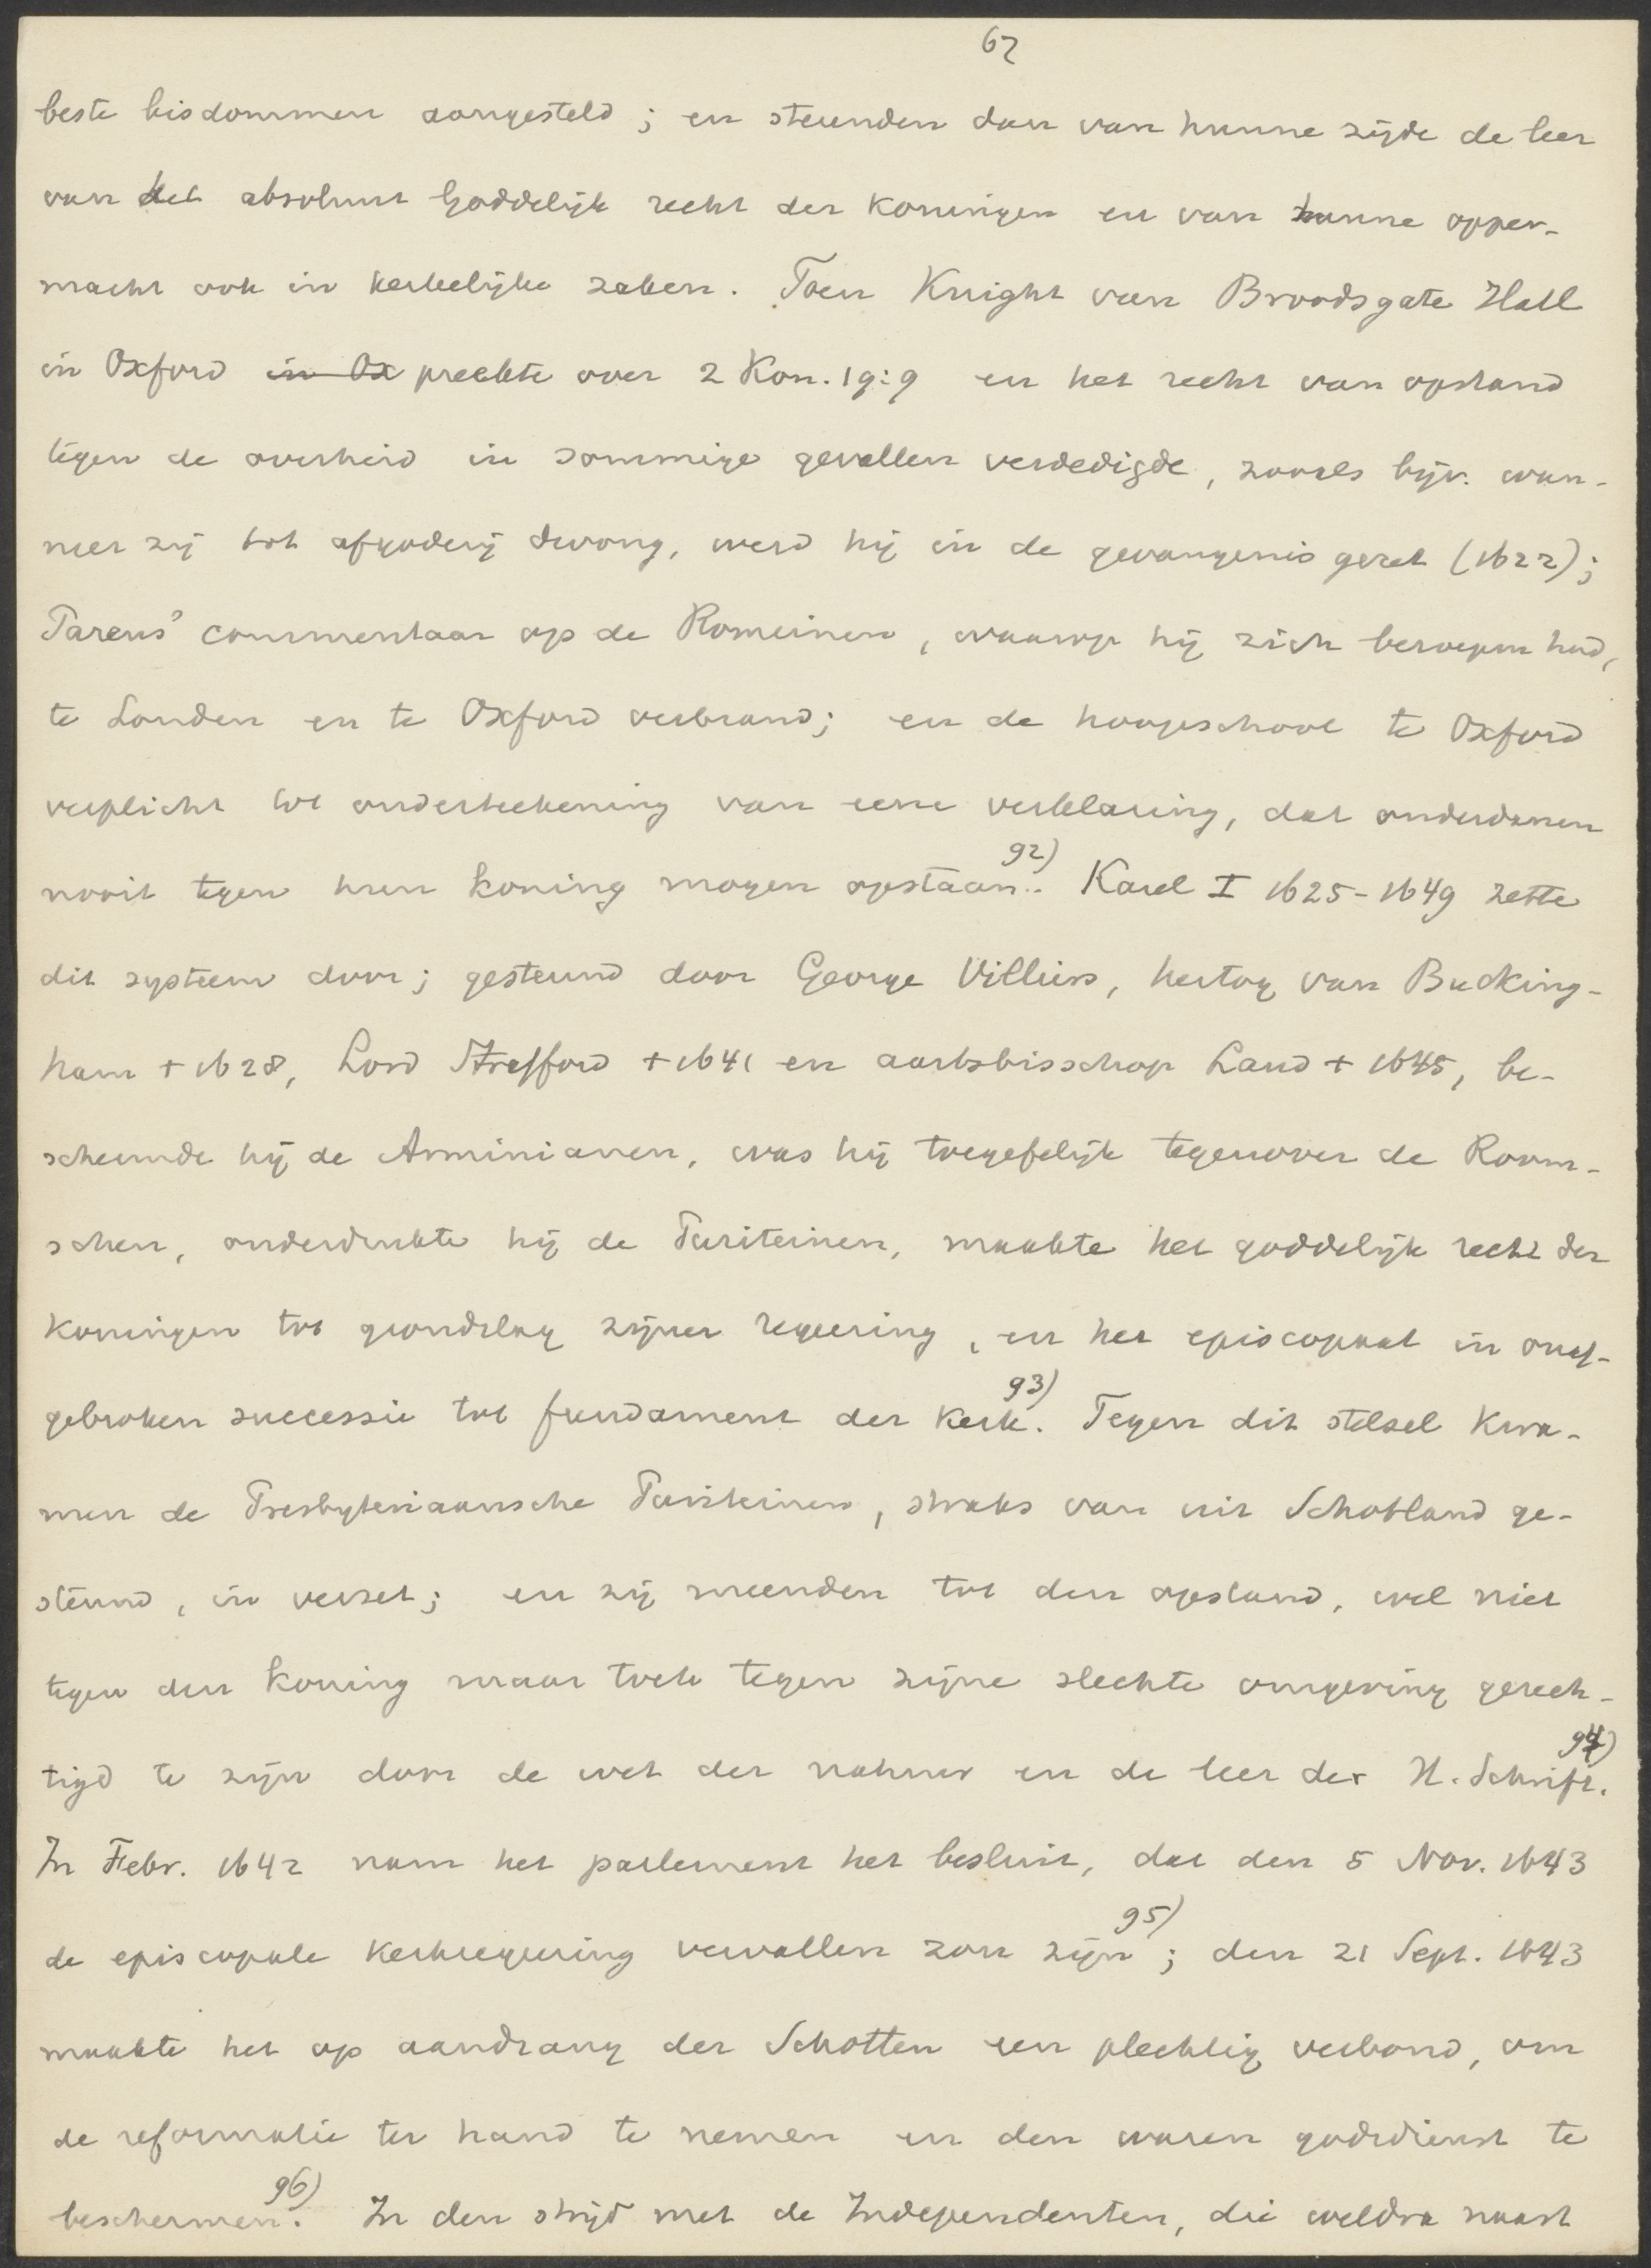 62
beste bisdommen aangesteld; en steunden dan van hunne zijde de leer
van het absoluut Goddelijk recht der koningen en van hunne opper-
macht ook in kerkelijke zaken. Toen Knight van Broadsgate Hall
in Oxford in Ox preekte over 2 Kon. 19:9 en het recht van opstand
tegen de overheid in sommige gevallen verdedigde, zooals bijv. wan-
neer zij tot afgoderij dwong, werd hij in de gevangenis gezet (1622);
Pareus' commentaar op de Romeinen, waarop hij zich beroepen had,
te Londen en te Oxford verbrand; en de hoogeschool te Oxford
verplicht tot onderteekening van eene verklaring, dat onderdanen
nooit tegen hun koning mogen opstaan. 92) Karel I 1625-1649 zette
dit systeem door; gesteund door George Villiers, hertog van Bucking-
ham + 1628, Lord Strafford + 1641 en aartsbisschop Laud + 1645, be-
schermde hij de Arminianen, was hij toegefelijk tegenover de Room-
schen, onderdrukte hij de Puriteinen, maakte het goddelijk recht der
koningen tot grondslag zijner regeering, en het episcopaat in onaf-
gebroken successie tot fundament der kerk. 93) Tegen dit stelsel kwa-
men de Presbyteriaansche Puriteinen, straks van uit Schotland ge-
steund, in verzet; en zij meenden tot den opstand, wel niet
tegen den koning maar toch tegen zijne slechte omgeving gerech-
tigd te zijn door de wet der natuur en de leer der H. Schrift. 94)
In Febr. 1642 nam het parlement het besluit, dat den 5 Nov. 1643
de episcopale kerkregeering vervallen zou zijn 95); den 21 Sept. 1643
maakte het op aandrang der Schotten een plechtig verbond, om
de reformatie ter hand te nemen en den waren godsdienst te
beschermen. 96) In den strijd met de Independenten, die weldra naast